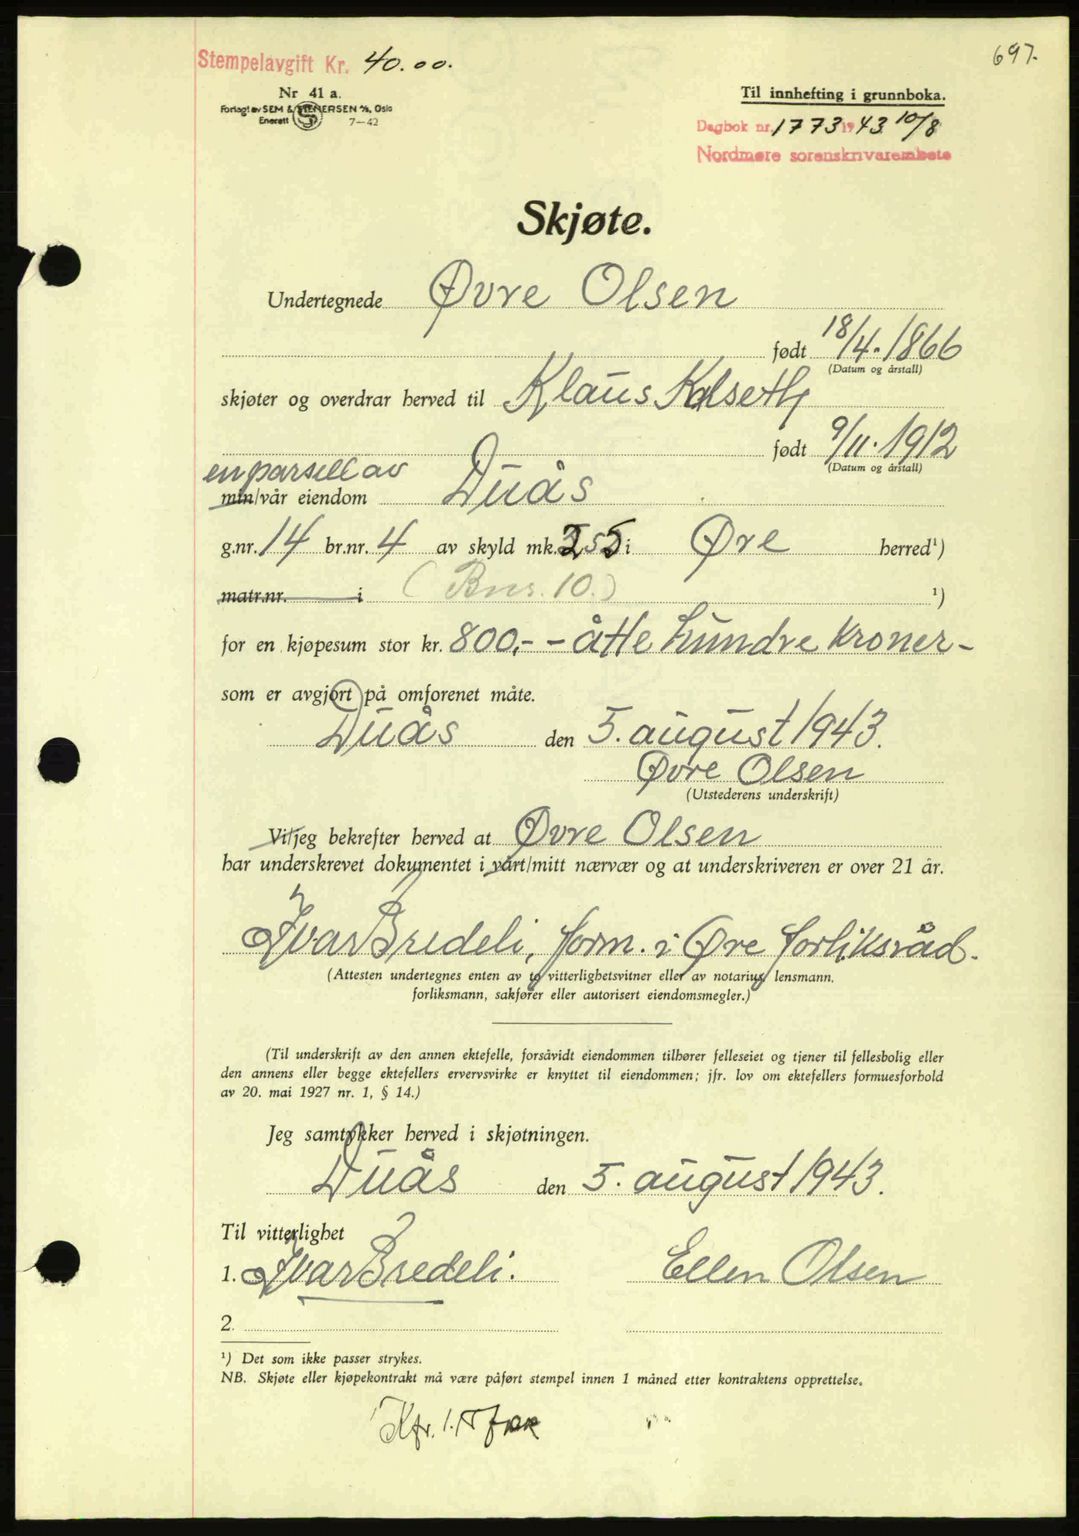 697.
Stempelavgift Kr. 40.00.
Nr 41 a.
Forlagt av SEM & STENERSEN A/S, Oslo
Enerett 7-42
Til innhefting i grunnboka.
Dagbok nr. 1773 1943 10/8
Nordmøre sorenskrivarembete
Skjøte.
Undertegnede Øvre Olsen
født 18/4-1866
(Datum og årstall)
skjøter og overdrar herved til Klaus Kalseth
født 9/11-1912
(Datum og årstall)
en parsell av
min/vår eiendom Duås
g.nr. 14 br.nr. 4 av skyld mk. i Øre herred¹)
matr.nr. i (Bnr. 10.) ¹)
for en kjøpesum stor kr. 800,- - åtte hundre kroner-
som er avgjort på omforenet måte.
Duås den 5. august 1943.
Øvre Olsen
(Utstederens underskrift)
Vi/jeg bekrefter herved at Øvre Olsen
har underskrevet dokumentet i vårt/mitt nærvær og at underskriveren er over 21 år.
Ivar Bredeli, form. i Øre forliksråd.
(Attesten undertegnes enten av to vitterlighetsvitner eller av notarius, lensmann,
forliksmann, sakfører eller autorisert eiendomsmegler.)
(Til underskrift av den annen ektefelle, forsåvidt eiendommen tilhører felleseiet og tjener til fellesbolig eller
den annens eller begge ektefellers ervervsvirke er knyttet til eiendommen; jfr. lov om ektefellers formuesforhold
av 20. mai 1927 nr. 1, § 14.)
Jeg samtykker herved i skjøtningen.
Duås den 5. august 1943.
Til vitterlighet
1. Ivar Bredeli. Ellen Olsen
2.
¹) Det som ikke passer strykes.
NB. Skjøte eller kjøpekontrakt må være påført stempel innen 1 måned etter kontraktens opprettelse.